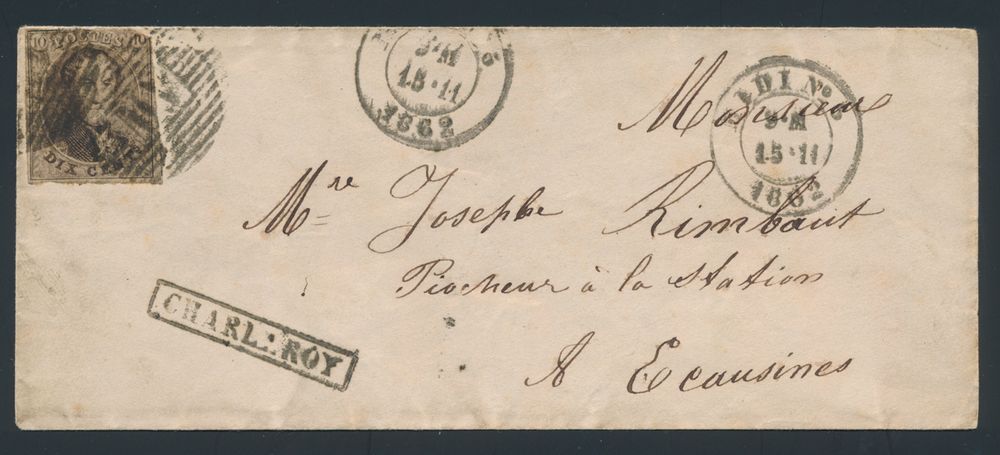 10 POSTES
DIX CENT
9•M
15•11
1862
MIDI No
9•M
15•11
1862
Monsieur
Mre Josephe Rimbaut
Piocheur à la Station
A Ecausines
CHARLEROY